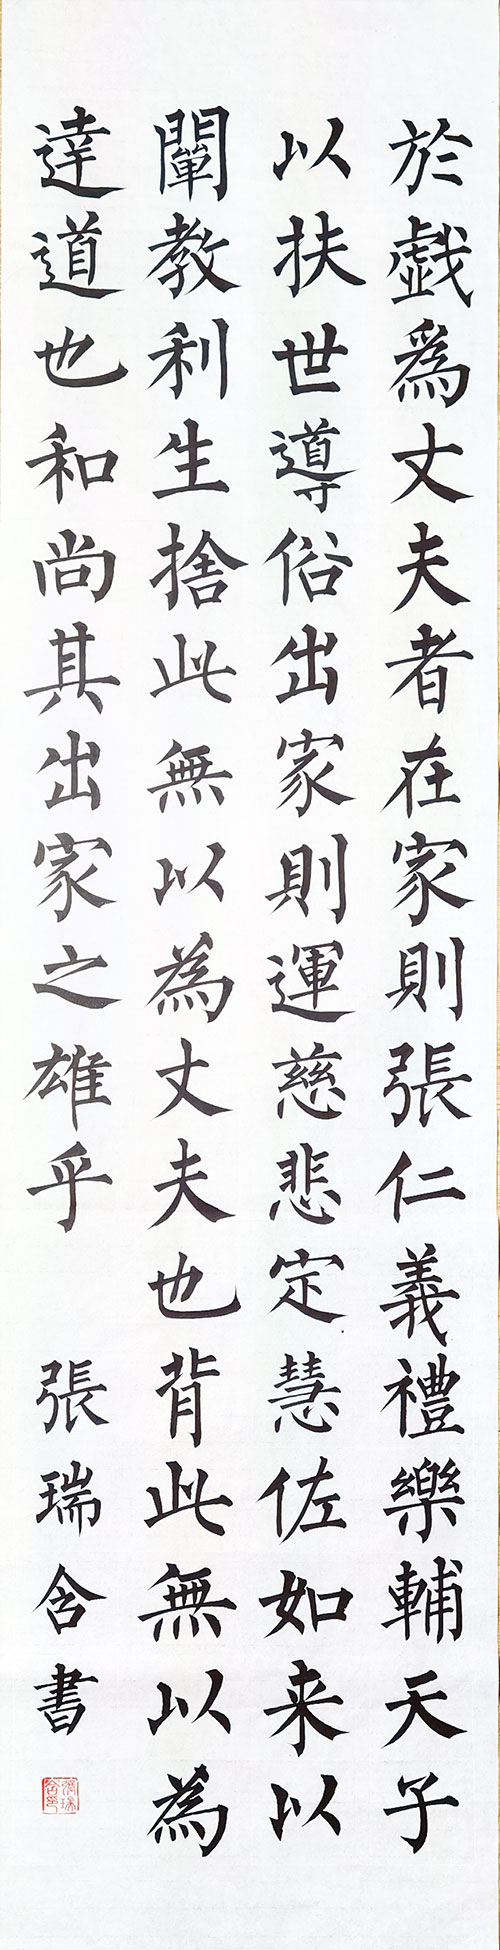 於戲為丈夫者在家則張仁義禮樂輔天子
以扶世導俗出家則運慈悲定慧佐如来以
闡教利生捨此無以為丈夫也背此無以為
達道也和尚其出家之雄乎
張瑞含書
張瑞含印